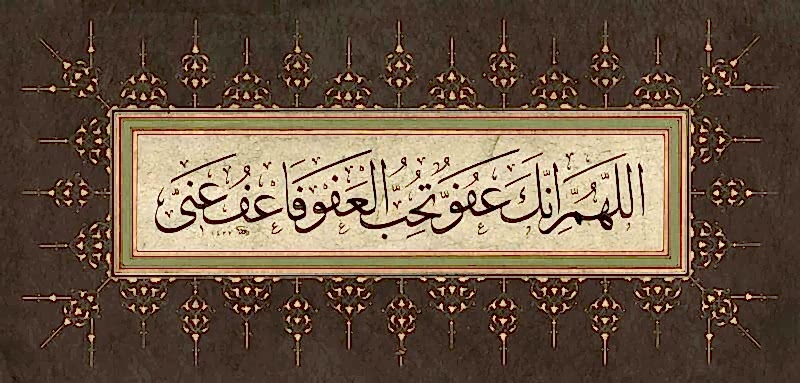 اللَّهُمَّ إِنَّكَ عَفُوٌّ تُحِبُّ العَفْوَ فَاعْفُ عَنِّي